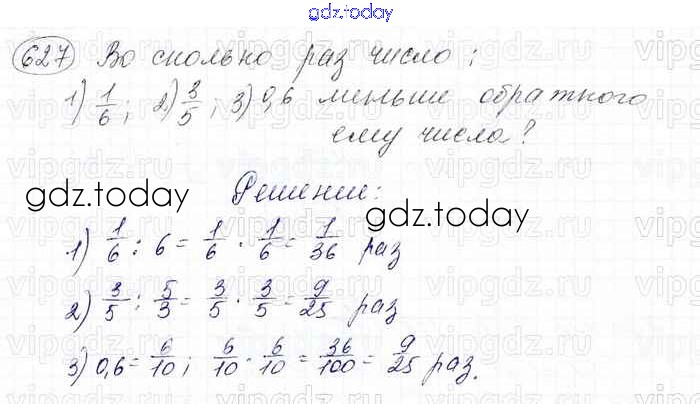 gdz.today
627 Во сколько раз число:
1) 1/6; 2) 3/5; 3) 0,6 меньше обратного
ему числа?
Решение:
gdz.today
gdz.today
1) 1/6 : 6 = 1/6 · 1/6 = 1/36 раз
2) 3/5 : 5/3 = 3/5 · 3/5 = 9/25 раз
3) 0,6 = 6/10; 6/10 · 6/10 = 36/100 = 9/25 раз.